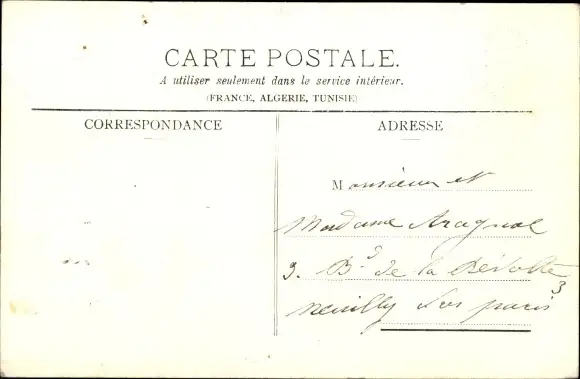 CARTE POSTALE.
A utiliser seulement dans le service intérieur.
(FRANCE, ALGERIE, TUNISIE)
CORRESPONDANCE
ADRESSE
Monsieur et
Madame Aragnol
3. Bd de la Révolte
3
Neuilly sur paris